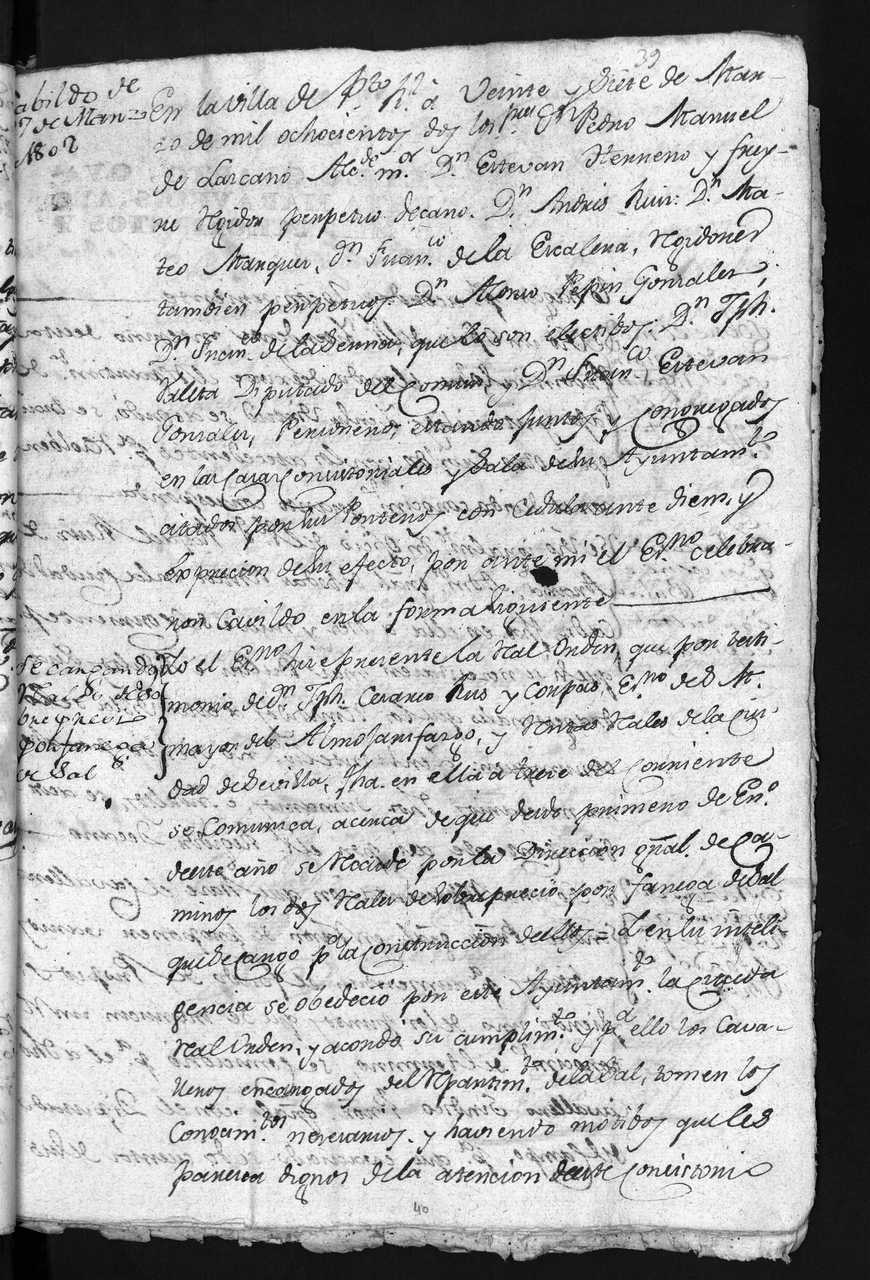 39
Cabildo de
27 de Mar-
1802
En la villa de Pto. Rl. à Veinte y Siete de Mar-
zo de mil ochocientos dos los Sres. Dn. Pedro Manuel
de Lazcano Alcde. mor. Dn. Estevan Herrero y Frey-
re Regidor perpetuo decano. Dn. Andres Ruiz: Dn. Ma-
teo Marquez, Dn. Franco. de la Escalera, Regidores
tambien perpetuos. Dn. Alonso Pepin Gonzalez,
Dn. Franco. de la Serna, que lo son electibos. Dn. Jph.
Diputado del Comun, y Dn. Franco. Estevan
Gonzalez, Personero, estando juntos, y Congregados
en las Casas Consistoriales y Sala de su Ayuntamto.
citados por sus Porteros con Cedula ante diem, y
exprecion de su efecto, por ante mi el Esno. celebra-
ron Cavildo en la forma siguiente
Se cargando
Rs. de so-
bre precio
por fanega
de Sal
Yo el Esno. hice presente la Real Orden, que por testi-
monio de Dn. Jph. Cesareo Ruis y Corpas, Esno. de S. M.
mayor del Almojarifazgo, y Rentas Reales de la Ciu-
dad de Sevilla, fha. en ella à trece del Corriente
se Comunica, acerca de que desde primero de Eno.
de este año se Recaude por la Direccion gral. de Ca-
minos los dos Reales de sobreprecio por fanega de Sal
que se cargò pa. la Construccion de ellos = Y en su inteli-
gencia se obedecio por este Ayuntamto. la Citada
Real Orden, y acordò su cumplimto. y pa. ello los Cava-
lleros encargados del Repartimto. de la Sal, tomen los
Conocimtos. necesarios. y haviendo motibos que les
paresca dignos de la atencion de este Concistorio
40